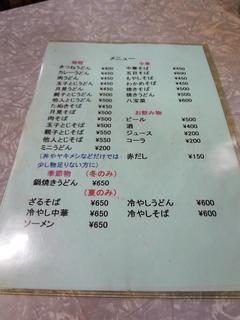 メニュー
麺類
きつねうどん ¥450
カレーうどん ¥500
肉うどん ¥500
玉子とじうどん ¥450
月見うどん ¥450
親子とじうどん ¥550
他人とじうどん ¥550
たぬきそば ¥450
月見そば ¥450
肉そば ¥500
玉子とじそば ¥450
親子とじそば ¥550
他人とじそば ¥550
ミニうどん ¥200
(丼やヤキメシなどだけでは
少し物足りない方に)
中華
中華そば ¥450
五目そば ¥600
もやしそば
わかめそば
焼きそば
焼きうどん
八宝菜
お飲み物
ビール ¥500
酒 ¥400
ジュース ¥200
コーラ ¥200
赤だし ¥150
季節物 (冬のみ)
鍋焼きうどん ¥650
(夏のみ)
ざるそば ¥650
冷やし中華 ¥650
ソーメン ¥650
冷やしうどん ¥600
冷やしそば ¥600